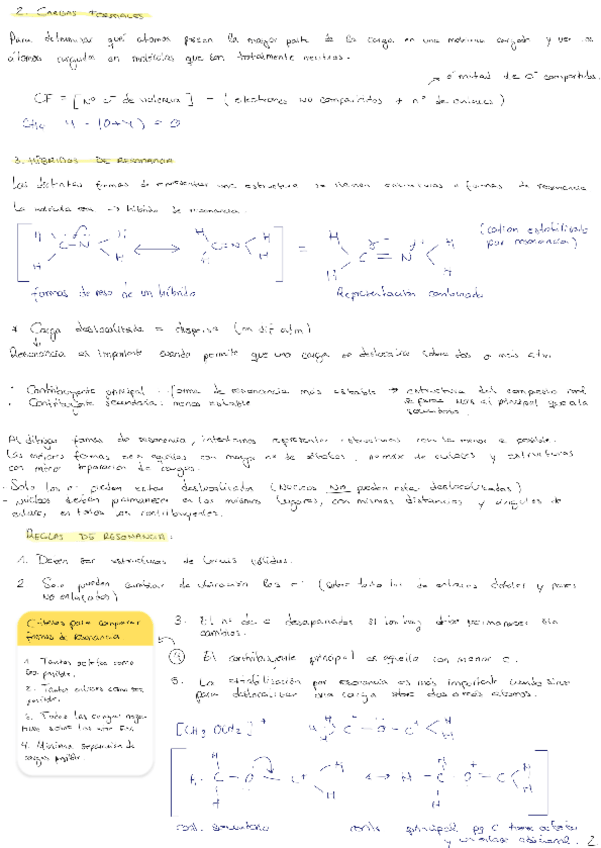 2. CARGAS FORMALES
Para determinar qué átomos poseen la mayor parte de la carga en una molécula cargada y ver si
átomos cargados en moléculas que son totalmente neutras.
ó mitad de e⁻ compartidos
CF = [Nº e⁻ de valencia] - (electrones no compartidos + nº de enlaces)
CH₄ 4 - (0+4) = 0
3. HÍBRIDOS DE RESONANCIA
Las distintas formas de representar una estructura se llaman estructuras o formas de resonancia
La molécula → híbrido de resonancia.
(catión estabilizado
por resonancia)
H C N H ↔ H C N H = H C N H
formas de reso de un híbrido
Representación combinada
* Carga deslocalizada = dispersa
Resonancia es importante cuando permite que una carga se deslocalice sobre dos o más átm.
· Contribuyente principal: forma de resonancia más estable → estructura del compuesto real
se parece más al principal que a la
· Contribuyente secundario: menos estable
secundaria.
Al dibujar formas de resonancia, intentamos representar estructuras con la menor e posible.
Las mejores formas son aquellas con mayor nº de octetos, nº máx de enlaces y estructuras
con menor separación de cargas.
- Solo los e⁻ pueden estar deslocalizados (Núcleos NO pueden estar deslocalizados)
- núcleos deben permanecer en los mismos lugares, con mismas distancias y ángulos de
enlace, en todos los contribuyentes.
REGLAS DE RESONANCIA:
1. Deben ser estructuras de Lewis válidas.
2. Solo pueden cambiar de ubicación los e⁻ (sobre todo los de enlaces dobles y pares
no enlazados)
Criterios para comparar
formas de resonancia
1. Tantos octetos como
sea posible.
2. Tantos enlaces como sea
posible.
3. Todas las cargas nega-
tivas sobre los
4. Mínima separación de
cargas posible
3. El nº de e⁻ desapareados si los hay debe permanecer sin
cambios.
④ El contribuyente principal es aquello con menor E.
5. La estabilización por resonancia es más importante cuando sirve
para deslocalizar una carga sobre dos o más átomos.
[CH₃OCH₂]⁺ H C - O - C⁺ H
H - C - O - C⁺ H ↔ H - C - O⁺ = C H
cont. secundario
contr. principal pq C tiene octeto
y un enlace adicional.
2